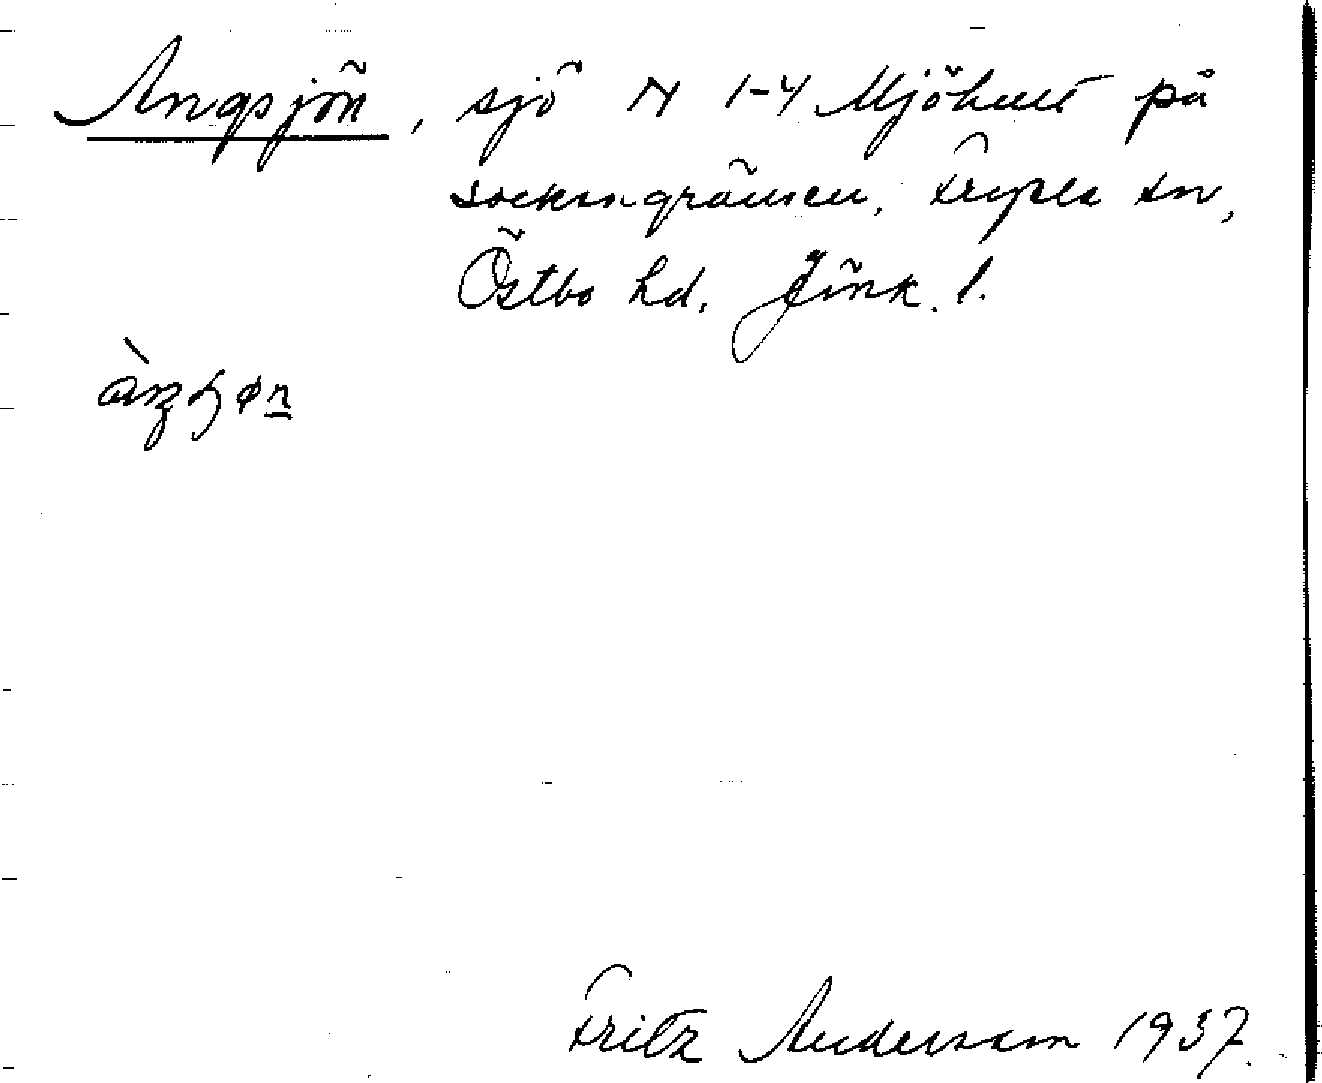 Angsjön, sjö N 1-4 Mjöhult på
sockengränsen, Fryele sn,
Östbo hd. Jönk. l.
Fritz Andersson 1937.